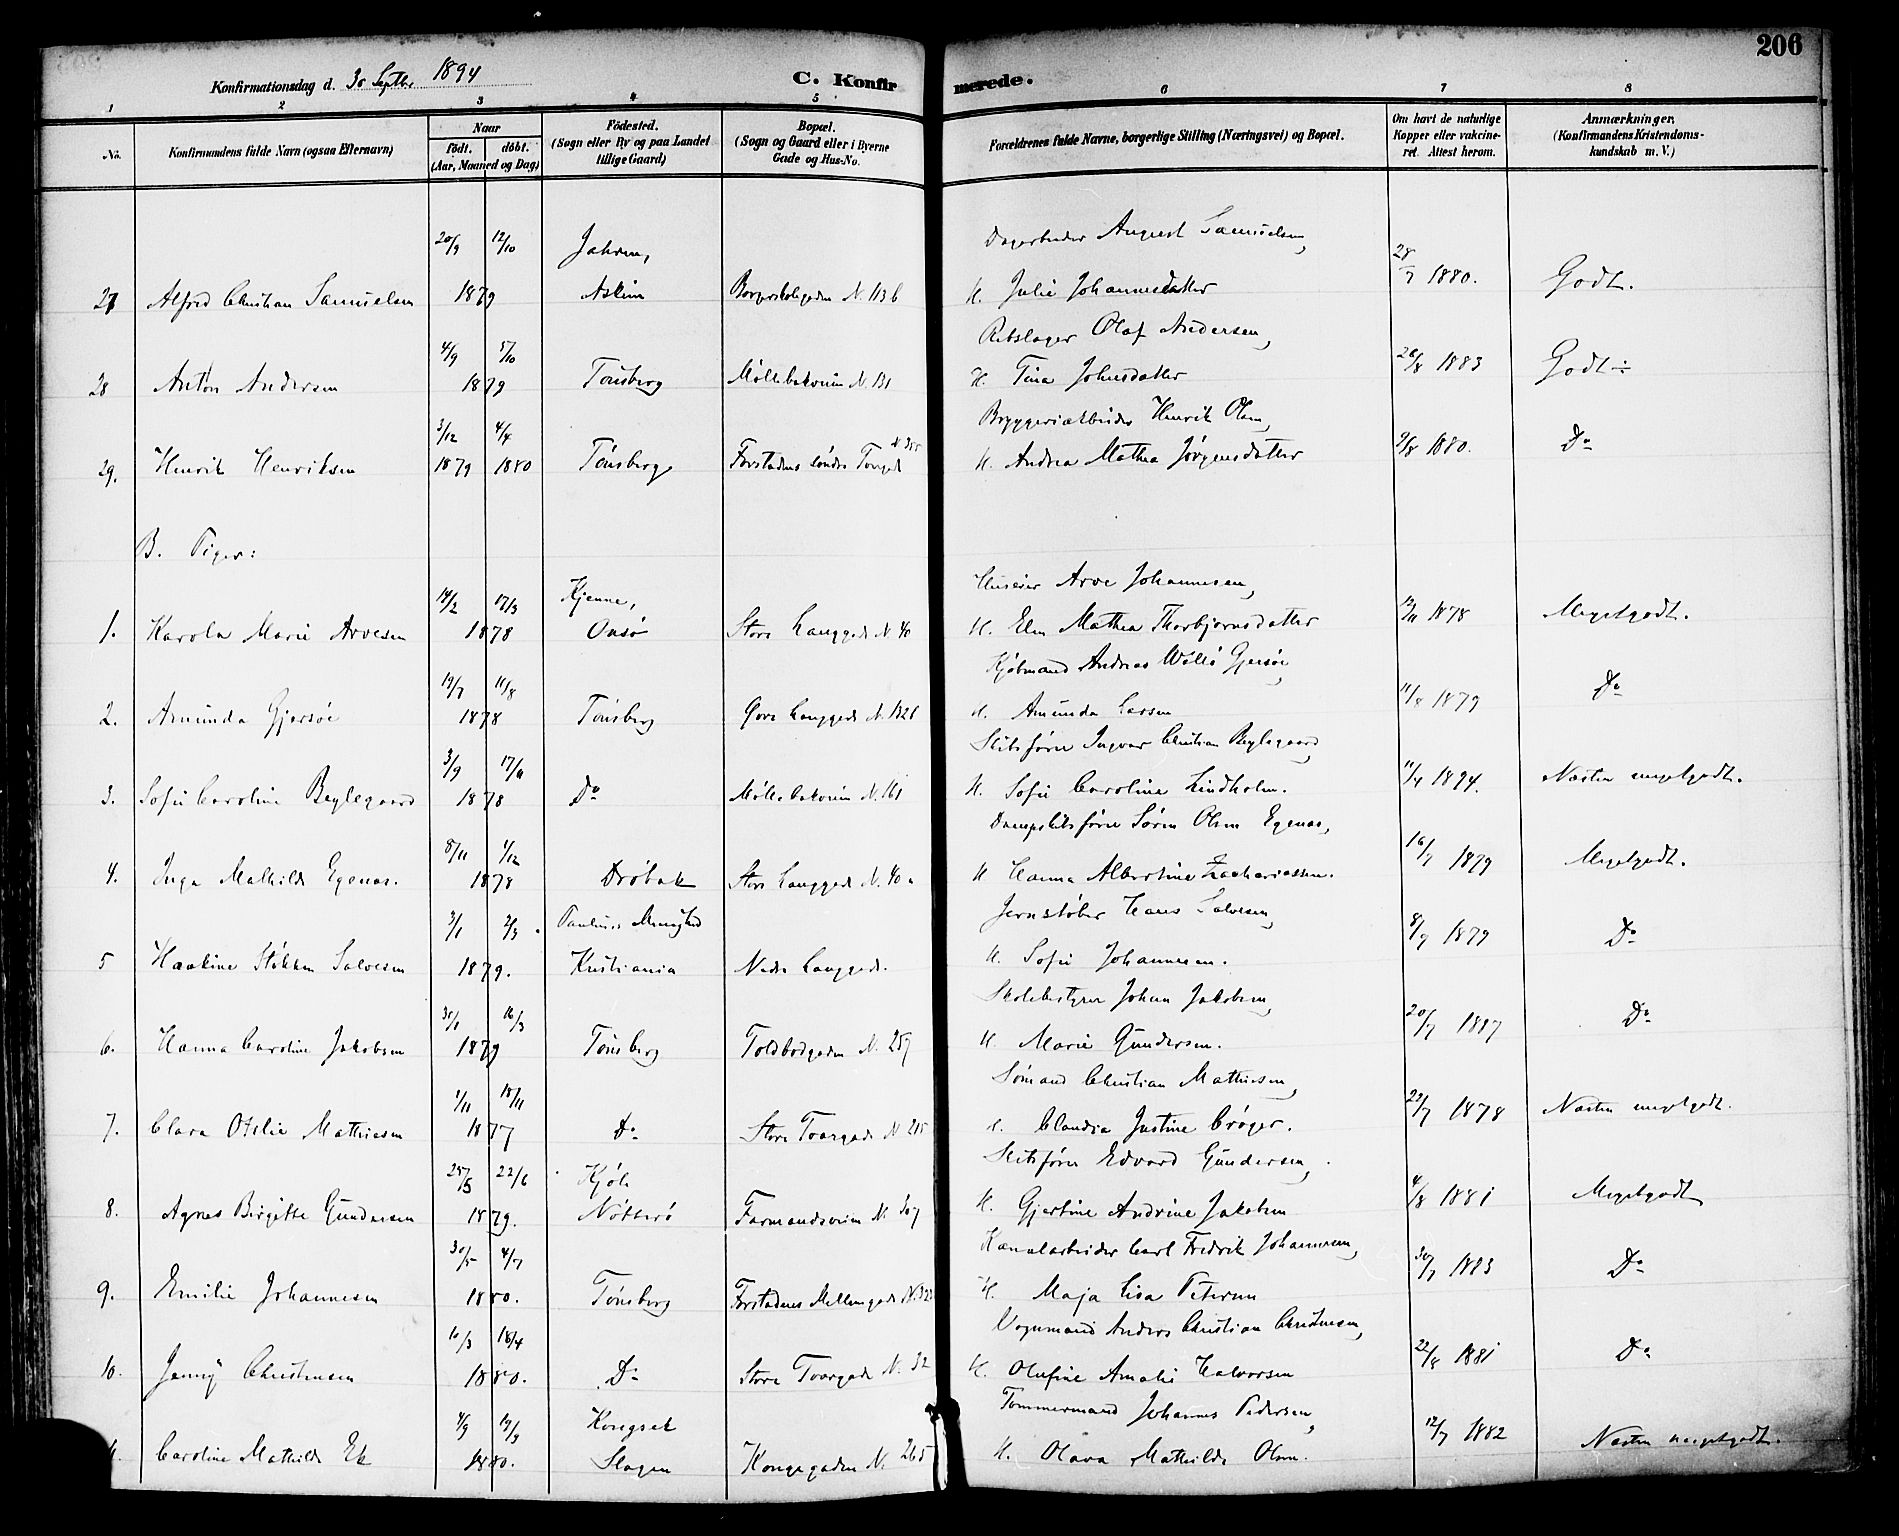 206
Konfirmationsdag d. 30 Septbr. 1894
C. Konfirmerede.
1 2 3 4 5 6 7 8
No.
Konfirmandens fulde Navn (ogsaa Efternavn)
Naar
födt. döbt.
(Aar, Maaned og Dag)
Födested.
(Sogn eller By og paa Landet
tillige Gaard)
Bopæl.
(Sogn og Gaard eller i Byerne
Gade og Hus-No.
Forældrenes fulde Navne, borgerlige Stilling (Næringsvei) og Bopæl.
Om havt de naturlige
Kopper eller vakcine-
ret. Attest herom.
Anmærkninger.
(Konfirmandens Kristendoms-
kundskab m. V.)
20/9 12/10 Jahren, Dagarbeider August Samuelsen,
27 Alfred Christian Samuelsen 1879 Askim Borgerskolegaden N. 113 b H. Julie Johannesdatter 28/7 1880. Godt.
4/9 5/10 Rebslager Olaf Andersen,
28 Anton Andersen 1879 Tønsberg Møllebakveien N. 131 H. Tina Johnsdatter 28/8 1883 Godt ÷
3/12 4/4 Bryggeriarbeider Henrik Olsen,
29. Henrik Henriksen 1879 1880 Tønsberg Forstadens søndre Torvgade H. Andrea Mathea Jørgensdatter 9/8 1880. Do
B. Piger:
14/2 17/3 Kjenne, Huseier Arve Johannesen,
1. Karola Marie Arvesen 1878 Onsø Store Langgade N. 40 H. Elen Mathea Thorbjørnsdatter 1878 Megetgodt.
19/7 11/8 Kjøbmand Andreas Gjersøe,
2. Amunda Gjersøe 1878 Tønsberg Øvre Langgade N. 132 b H. Amunda Larsen 11/8 1879 Do
3/9 17/11 Skibsfører Ingvar Christian Beylegaard,
3. Sofie Caroline Beylegaard 1878 Do Møllebakveien N. 161 H. Sofie Caroline Lindholm. 11/4 1894. Næsten megetgodt.
8/11 1/12 Dampskibsfører Søren Olsen Egenæs,
4. Inga Mathilde Egenæs. 1878 Drøbak Store Langgade N. 40 a H. Hanna Albertine Zachariassen. 16/7 1879 Megetgodt.
3/1 2/3 Paulus Menighed Jernstøber Hans Salvesen,
5 Haakine Støkken Salvesen 1879. Kristiania Nedre Langgade. H. Sofie Johannesen. 8/9 1879 Do
30/1 16/3 Skolebestyrer Johan Jakobsen,
6. Hanna Caroline Jakobsen 1879 Tønsberg Toldbodgaden N. 259 H. Marie Gundersen. 20/7 1887 Do
1/11 18/11 Sømand Christian Mathiesen,
7. Clara Otilie Mathiesen 1877 Do Store Torvgade N. 215 H. Claudia Justine Crøger. 22/7 1878 Næsten megetgodt.
25/5 22/6 Kjøle Skibsfører Edvard Gundersen,
8. Agnes Birgitte Gundersen 1879. Nøtterø Farmandsveien N. 307 H. Gjertine Andrine Jakobsen 4/8 1881 Megetgodt
30/5 4/7 Kanalarbeider Carl Fredrik Johannesen,
9. Emilie Johannesen 1880. Tønsberg Forstadens Mellemgade N. 322 H. Maja Lisa Petersen 30/7 1883 Do
10/3 18/4 Vognmand Anders Christian Christensen,
10. Jenny Christensen 1880. Do Store Torvgade N. 32 H. Olufine Amalie Halvorsen 22/8 1881 Do
4/9 19/9 Kongsek Tømmermand Johannes Pedersen,
Caroline Mathilde Ek 1880. Slagen Kongegaden N. 265 H. Olava Mathilde Olsen. 12/7 1882 Næsten megetgodt.